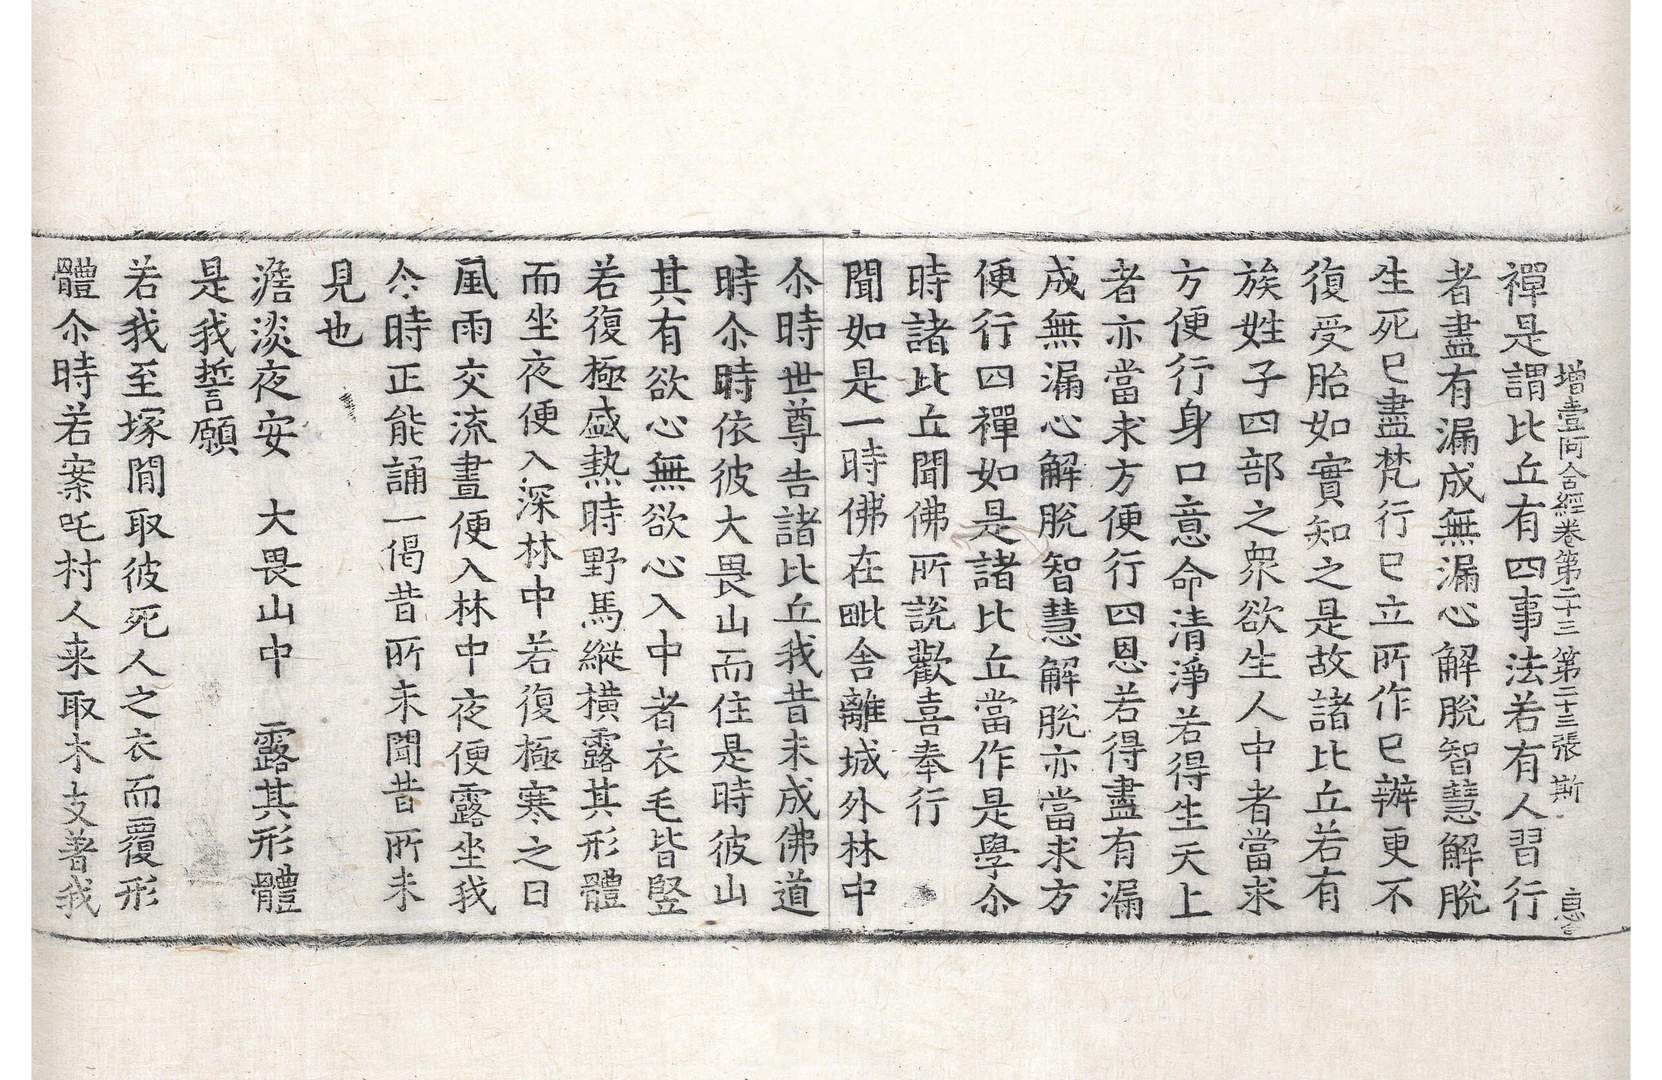 增壹阿含經卷第二十三 第二十三張 斯
禪是謂比丘有四事法若有人習行
者盡有漏成無漏心解脫智慧解脫
生死已盡梵行已立所作已辦更不
復受胎如實知之是故諸比丘若有
族姓子四部之眾欲生人中者當求
方便行身口意命清淨若得生天上
者亦當求方便行四恩若得盡有漏
成無漏心解脫智慧解脫亦當求方
便行四禪如是諸比丘當作是學尒
時諸比丘聞佛所說歡喜奉行
聞如是一時佛在毗舍離城外林中
尒時世尊告諸比丘我昔未成佛道
時尒時依彼大畏山而住是時彼山
其有欲心無欲心入中者衣毛皆竪
若復極盛熱時野馬縱橫露其形體
而坐夜便入深林中若復極寒之日
風雨交流晝便入林中夜便露坐我
尒時正能誦一偈昔所未聞昔所未
見也
澹淡夜安 大畏山中 露其形體
是我誓願
若我至塚間取彼死人之衣而覆形
體尒時若案吒村人来取木支著我